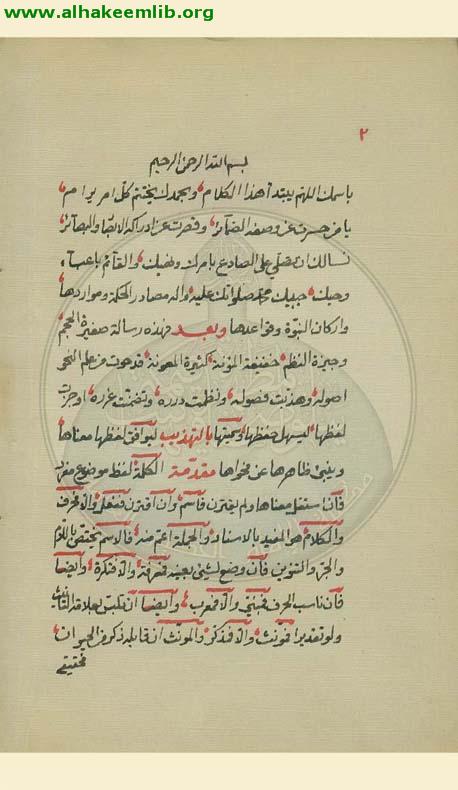 www.alhakeemlib.org
٢
بسم الله الرحمن الرحيم
باسمك اللهم يبتدأ هذا الكلام وبحمدك يختتم كل امر يرام
يا من حسرت عن وصفه الضمائر وقصرت عن ادراكه الابصار والبصائر
نسالك ان تصلي على الصادع بامرك ونهيك والقائم باعباء
وحيك حبيبك محمد صلواتك عليه واله مصادر الحكمة ومواردها
واركان النبوة وقواعدها وبعد فهذه رسالة صغيرة الحجم
وجيزة النظم خفيفة المؤنة كثيرة المعونة قد حوت من علم النحو
اصوله وهذبت فصوله ونظمت درره وتضمنت غرره اوجزت
لفظها ليسهل حفظها وسميتها بالتهذيب ليوافق لفظها معناها
وينبئ ظاهرها عن فحواها مقدمة الكلمة لفظ موضوع مفرد
فان استقل معناها ولم يقترن فاسم وان اقترن ففعل والا فحرف
والكلام هو المفيد بالاسناد والجملة اعم منه فالاسم يختص باللام
والجر والتنوين فان وضع لشئ بعينه فمعرفة والا فنكرة وايضا
فان ناسب الحرف فمبني والا فمعرب وايضا ان تلبس بعلامة التانيث
ولو تقديرا فمونث والا فمذكر والمونث ان قابله ذكر من الحيوان
فحقيقي